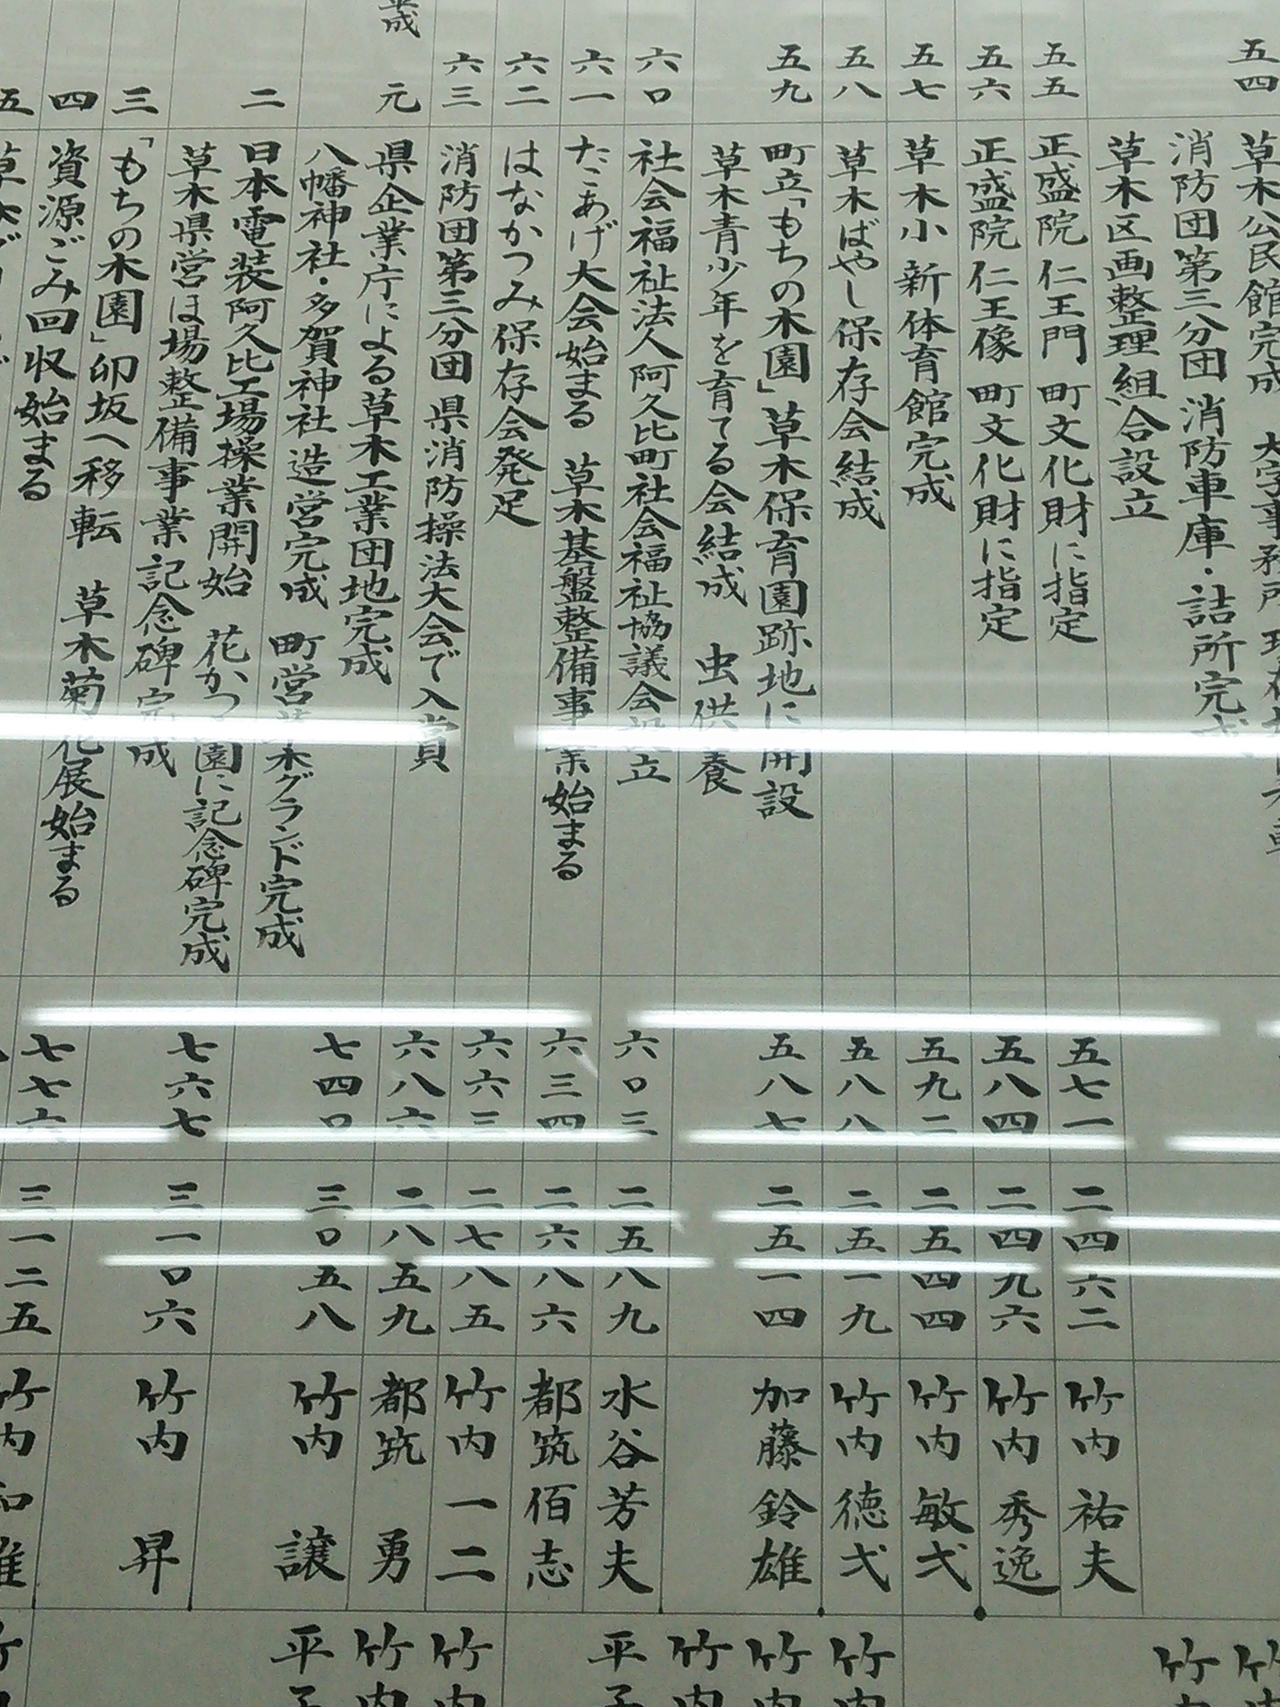 五四
草木公民館完成
消防団第三分団 消防車庫・詰所完成
草木区画整理組合設立
五五
正盛院 仁王門 町文化財に指定
五七一
二四六二
竹内祐夫
五六
正盛院 仁王像 町文化財に指定
五八四
二四九六
竹内秀逸
五七
草木小 新体育館完成
五九二
二五四四
竹内敏弐
五八
草木ばやし保存会結成
五八八
二五一九
竹内徳弐
五九
町立「もちの木園」草木保育園跡地に開設
五八七
二五一四
加藤鈴雄
草木青少年を育てる会結成 虫供養
六〇
社会福祉法人阿久比町社会福祉協議会設立
六〇三
二五八九
水谷芳夫
六一
たこあげ大会始まる 草木基盤整備事業始まる
六三四
二六八六
都筑佰志
六二
はなかつみ保存会発足
六六三
二七八五
竹内一二
六三
消防団第三分団 県消防操法大会で入賞
六八六
二八五九
都筑 勇
平成 元
県企業庁による草木工業団地完成
七四〇
三〇五八
竹内 譲
八幡神社・多賀神社 造営完成 町営草木グランド完成
二
日本電装阿久比工場操業開始 花かつみ園に記念碑完成
七六七
三一〇六
竹内 昇
草木県営ほ場整備事業記念碑完成
三
「もちの木園」卯坂へ移転 草木菊花展始まる
七七六
三一二五
竹内和雄
四
資源ごみ回収始まる
五
竹
竹内
竹内
竹内
平
竹内
竹内
平